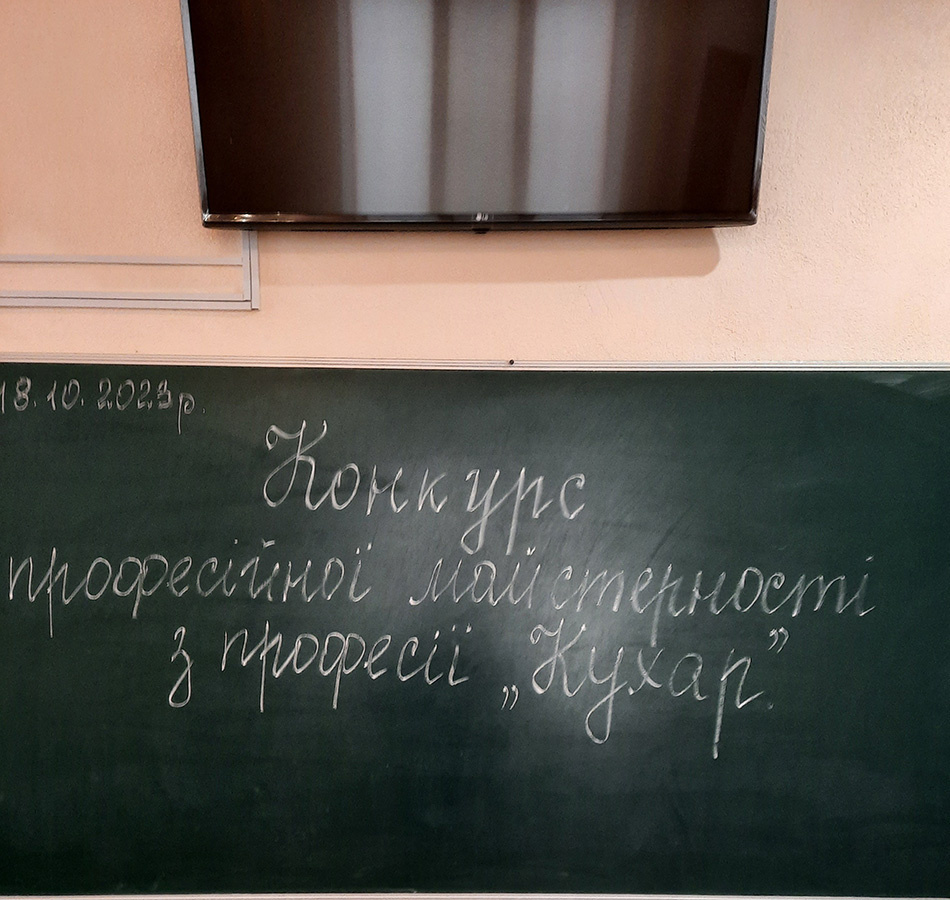 18.10.2023р.
Конкурс
професійної майстерності
з професії „Кухар”.